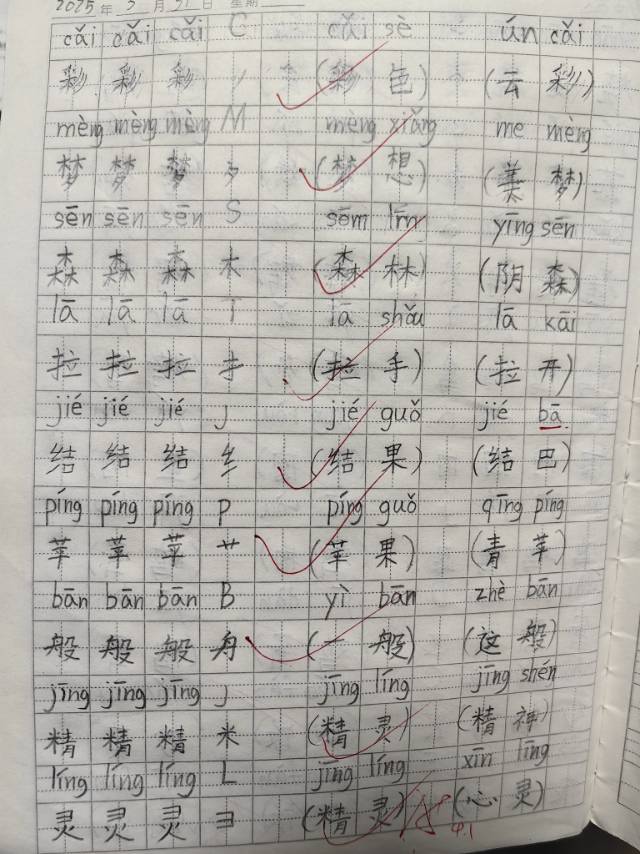 2025年3月21日 星期
cǎi cǎi cǎi C cǎi sè ún cǎi
彩 彩 彩 (彩 色) (云 彩)
mèng mèng mèng M mèng xiǎng me mèng
梦 梦 梦 夕 (梦 想) (美 梦)
sēn sēn sēn S sēm lín yīng sēn
森 森 森 木 (森 林) (阴 森)
lā lā lā lā shǎu lā kāi
拉 拉 拉 扌 (拉 手) (拉 开)
jié jié jié J jié guǒ jié bā
结 结 结 纟 (结 果) (结 巴)
píng píng píng P píng guǒ qīng píng
苹 苹 苹 艹 (苹 果) (青 苹)
bān bān bān B yì bān zhè bān
般 般 般 舟 (一 般) (这 般)
jīng jīng jīng J jīng líng jīng shén
精 精 精 米 (精 灵) (精 神)
líng líng líng L jīng líng xīn líng
灵 灵 灵 彐 (精 灵) (心 灵)